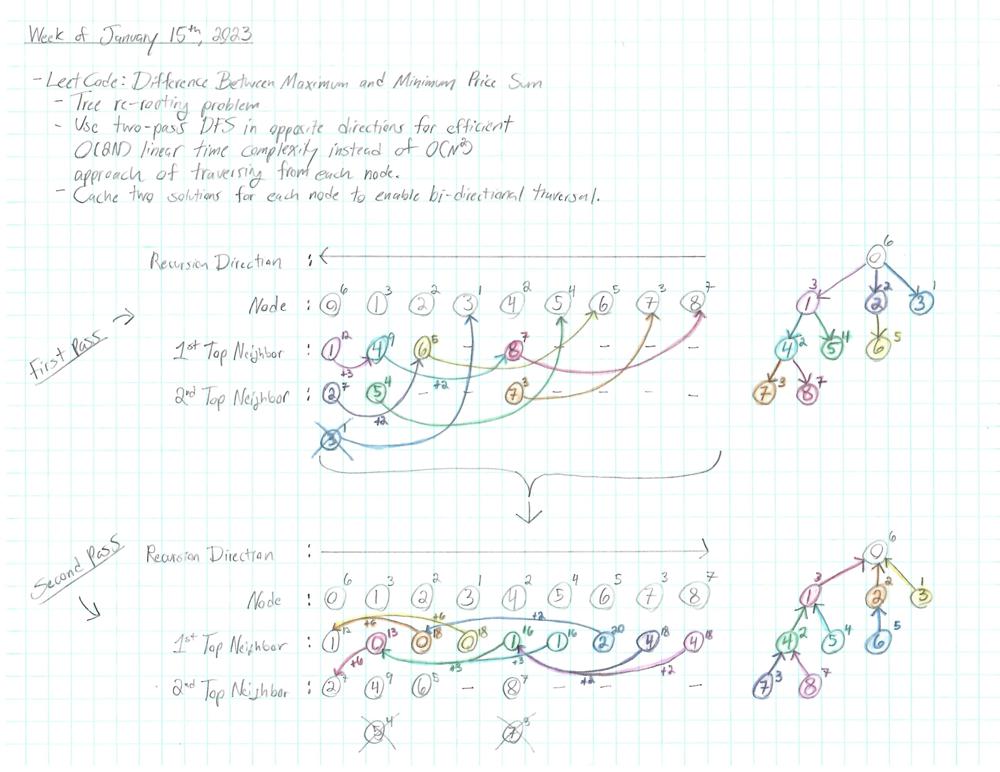 Week of January 15th, 2023
- LeetCode: Difference Between Maximum and Minimum Price Sum
- Tree re-rooting problem
- Use two-pass DFS in opposite directions for efficient
O(8N) linear time complexity instead of O(N²)
approach of traversing from each node.
- Cache two solutions for each node to enable bi-directional traversal.
First Pass
Recursion Direction :
Node : 0 6 1 3 2 2 3 1 4 2 5 4 6 5 7 3 8 7
1st Top Neighbor : 1 12 4 9 6 5 - 8 7 - - - -
+3 +2
2nd Top Neighbor : 2 7 5 4 - - 7 3 - - - -
+2
3 1
6
0
3 2 1
1 2 3
2 4 5
4 5 6
3 7
7 8
Second Pass
Recursion Direction :
Node : 0 6 1 3 2 2 3 1 4 2 5 4 6 5 7 3 8 7
+6 +6 +2
1st Top Neighbor : 1 12 0 13 0 18 0 18 1 16 1 16 2 20 4 18 4 18
+6 +3 +3 +2 +2
2nd Top Neighbor : 2 7 4 9 6 5 - 8 7 - - - -
5 4 7 3
6
0
3 2 1
1 2 3
2 4 5
4 5 6
3 7
7 8